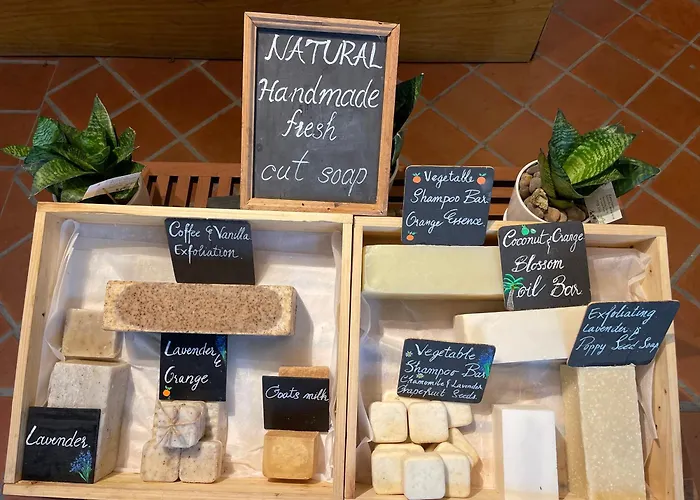 NATURAL
Handmade
fresh
cut soap
Coffee & Vanilla
Exfoliation.
Lavender &
Orange
Goats milk
Lavender.
Vegetable
Shampoo Bar
Orange Essence
Coconut & Orange
Blossom
oil Bar
Exfoliating
Lavender &
Poppy Seed Soap
Vegetable
Shampoo Bar
Chamomile & Lavender
Grapefruit seeds